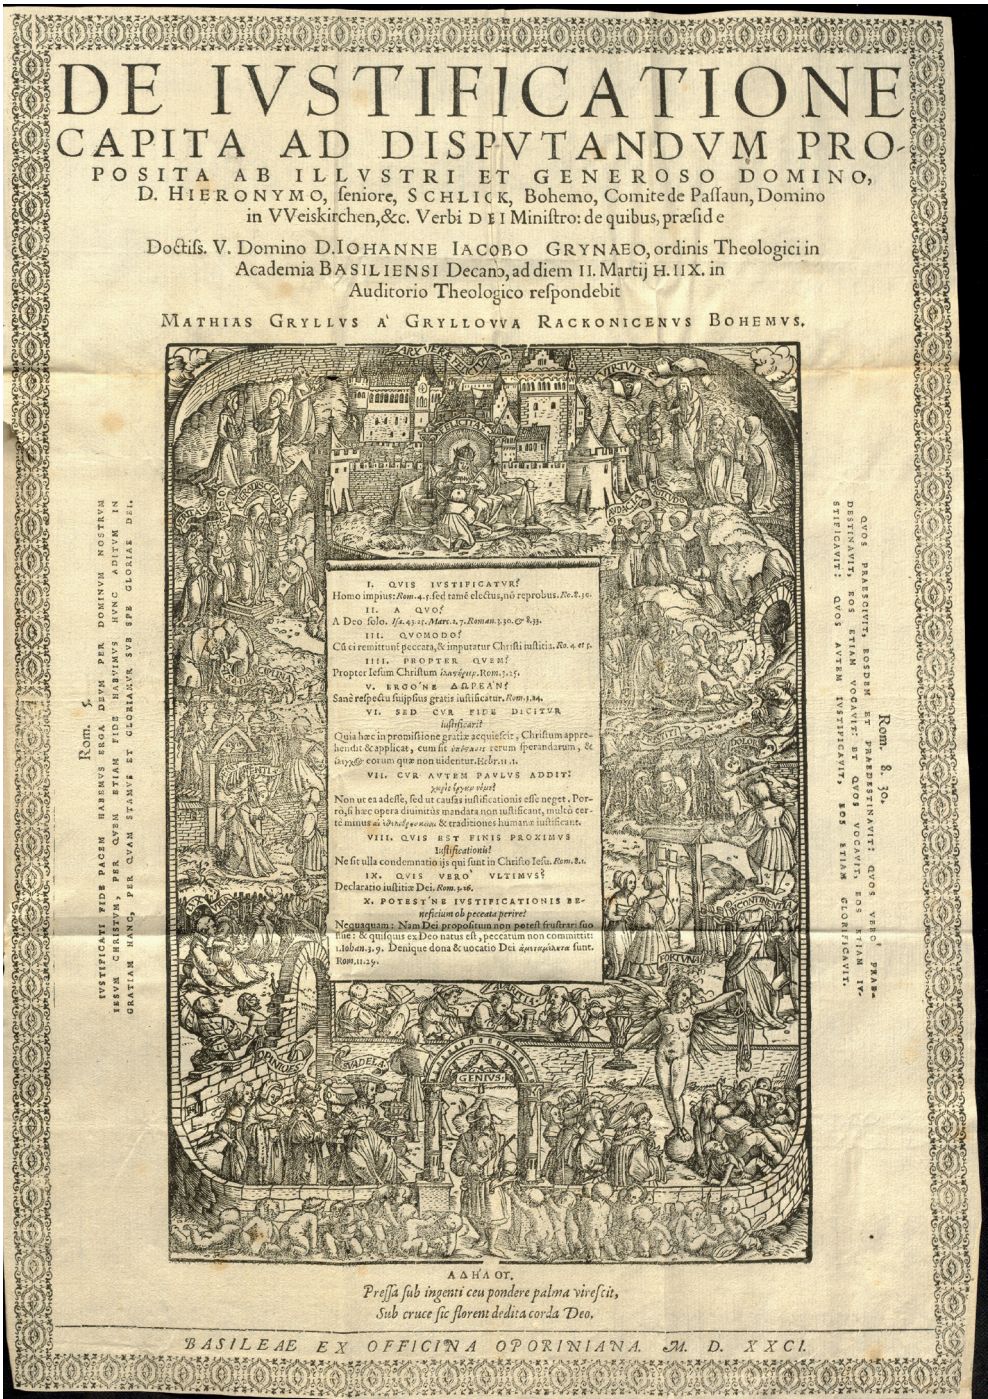 DE IVSTIFICATIONE
CAPITA AD DISPVTANDVM PRO-
POSITA AB ILLVSTRI ET GENEROSO DOMINO,
D. HIERONYMO, seniore, SCHLICK, Bohemo, Comite de Passaun, Domino
in VVeiskirchen, &c. Verbi DEI Ministro: de quibus, præside
Doctiss. V. Domino D. IOHANNE IACOBO GRYNAEO, ordinis Theologici in
Academia BASILIENSI Decano, ad diem II. Martij H. IIX. in
Auditorio Theologico respondebit
MATHIAS GRYLLVS A' GRYLLOVVA RACKONICENVS BOHEMVS.
ARX VERAE FELICITATIS
VIRTVTES
FELICITAS
AVDACIA
DISCIPLINA
DOLOR
INCONTINENTIA
FORTVNA
AVARITIA
OPINIOES
SVADELA
GENIVS
I. QVIS IVSTIFICATVR?
Homo impius: Rom. 4. 5. sed tamē electus, nō reprobus. Ro. 8. 30.
II. A QVO?
A Deo solo. Isa. 43. 25. Marc. 2. 7. Roman. 3. 30. & 8. 33.
III. QVOMODO?
Cū ei remittunt peccata, & imputatur Christi iustitia. Ro. 4. et 5.
IIII. PROPTER QVEM?
Propter Iesum Christum ἱλαστήριον. Rom. 3. 25.
V. ERGO'NE ΔΩΡΕΑ'Ν?
Sanè respectu sui ipsius gratis iustificatur. Rom. 3. 24.
VI. SED CVR FIDE DICITVR
iustificari?
Quia hæc in promissione gratiæ acquiescit, Christum appre-
hendit & applicat, cum sit ὑπόστασις rerum sperandarum, &
ἔλεγχος eorum quæ non uidentur. Hebr. 11. 1.
VII. CVR AVTEM PAVLVS ADDIT?
χωρὶς ἔργων νόμου?
Non ut ea adesse, sed ut causas iustificationis esse neget. Por-
rò, si hæc opera diuinitùs mandata non iustificant, multò cer-
tè minus & traditiones humanæ iustificant.
VIII. QVIS EST FINIS PROXIMVS
Iustificationis?
Ne sit ulla condemnatio ijs qui sunt in Christo Iesu. Rom. 8. 1.
IX. QVIS VERO' VLTIMVS?
Declaratio iustitiæ Dei. Rom. 3. 26.
X. POTEST'NE IVSTIFICATIONIS BE-
neficium ob peccata perire?
Nequaquam: Nam Dei propositum non potest frustrari suo
fine: & quisquis ex Deo natus est, peccatum non committit:
1. Iohan. 3. 9. Denique dona & uocatio Dei ἀμεταμέλητα sunt.
Rom. 11. 29.
Rom. 5.
IVSTIFICATI FIDE PACEM HABEMVS ERGA DEVM PER DOMINVM NOSTRVM
IESVM CHRISTVM, PER QVEM ETIAM FIDE HABVIMVS HVNC ADITVM IN
GRATIAM HANC, PER QVAM STAMVS ET GLORIAMVR SVB SPE GLORIAE DEI.
Rom. 8. 30.
QVOS PRAESCIVIT, EOSDEM ET PRAEDESTINAVIT: QVOS VERO' PRAE-
DESTINAVIT, EOS ETIAM VOCAVIT: ET QVOS VOCAVIT, EOS ETIAM IV-
STIFICAVIT: QVOS AVTEM IVSTIFICAVIT, EOS ETIAM GLORIFICAVIT.
ΑΔΗ'ΛΟΥ.
Pressa sub ingenti ceu pondere palma virescit,
Sub cruce sic florent dedita corda Deo.
BASILEAE EX OFFICINA OPORINIANA. M. D. XXCI.